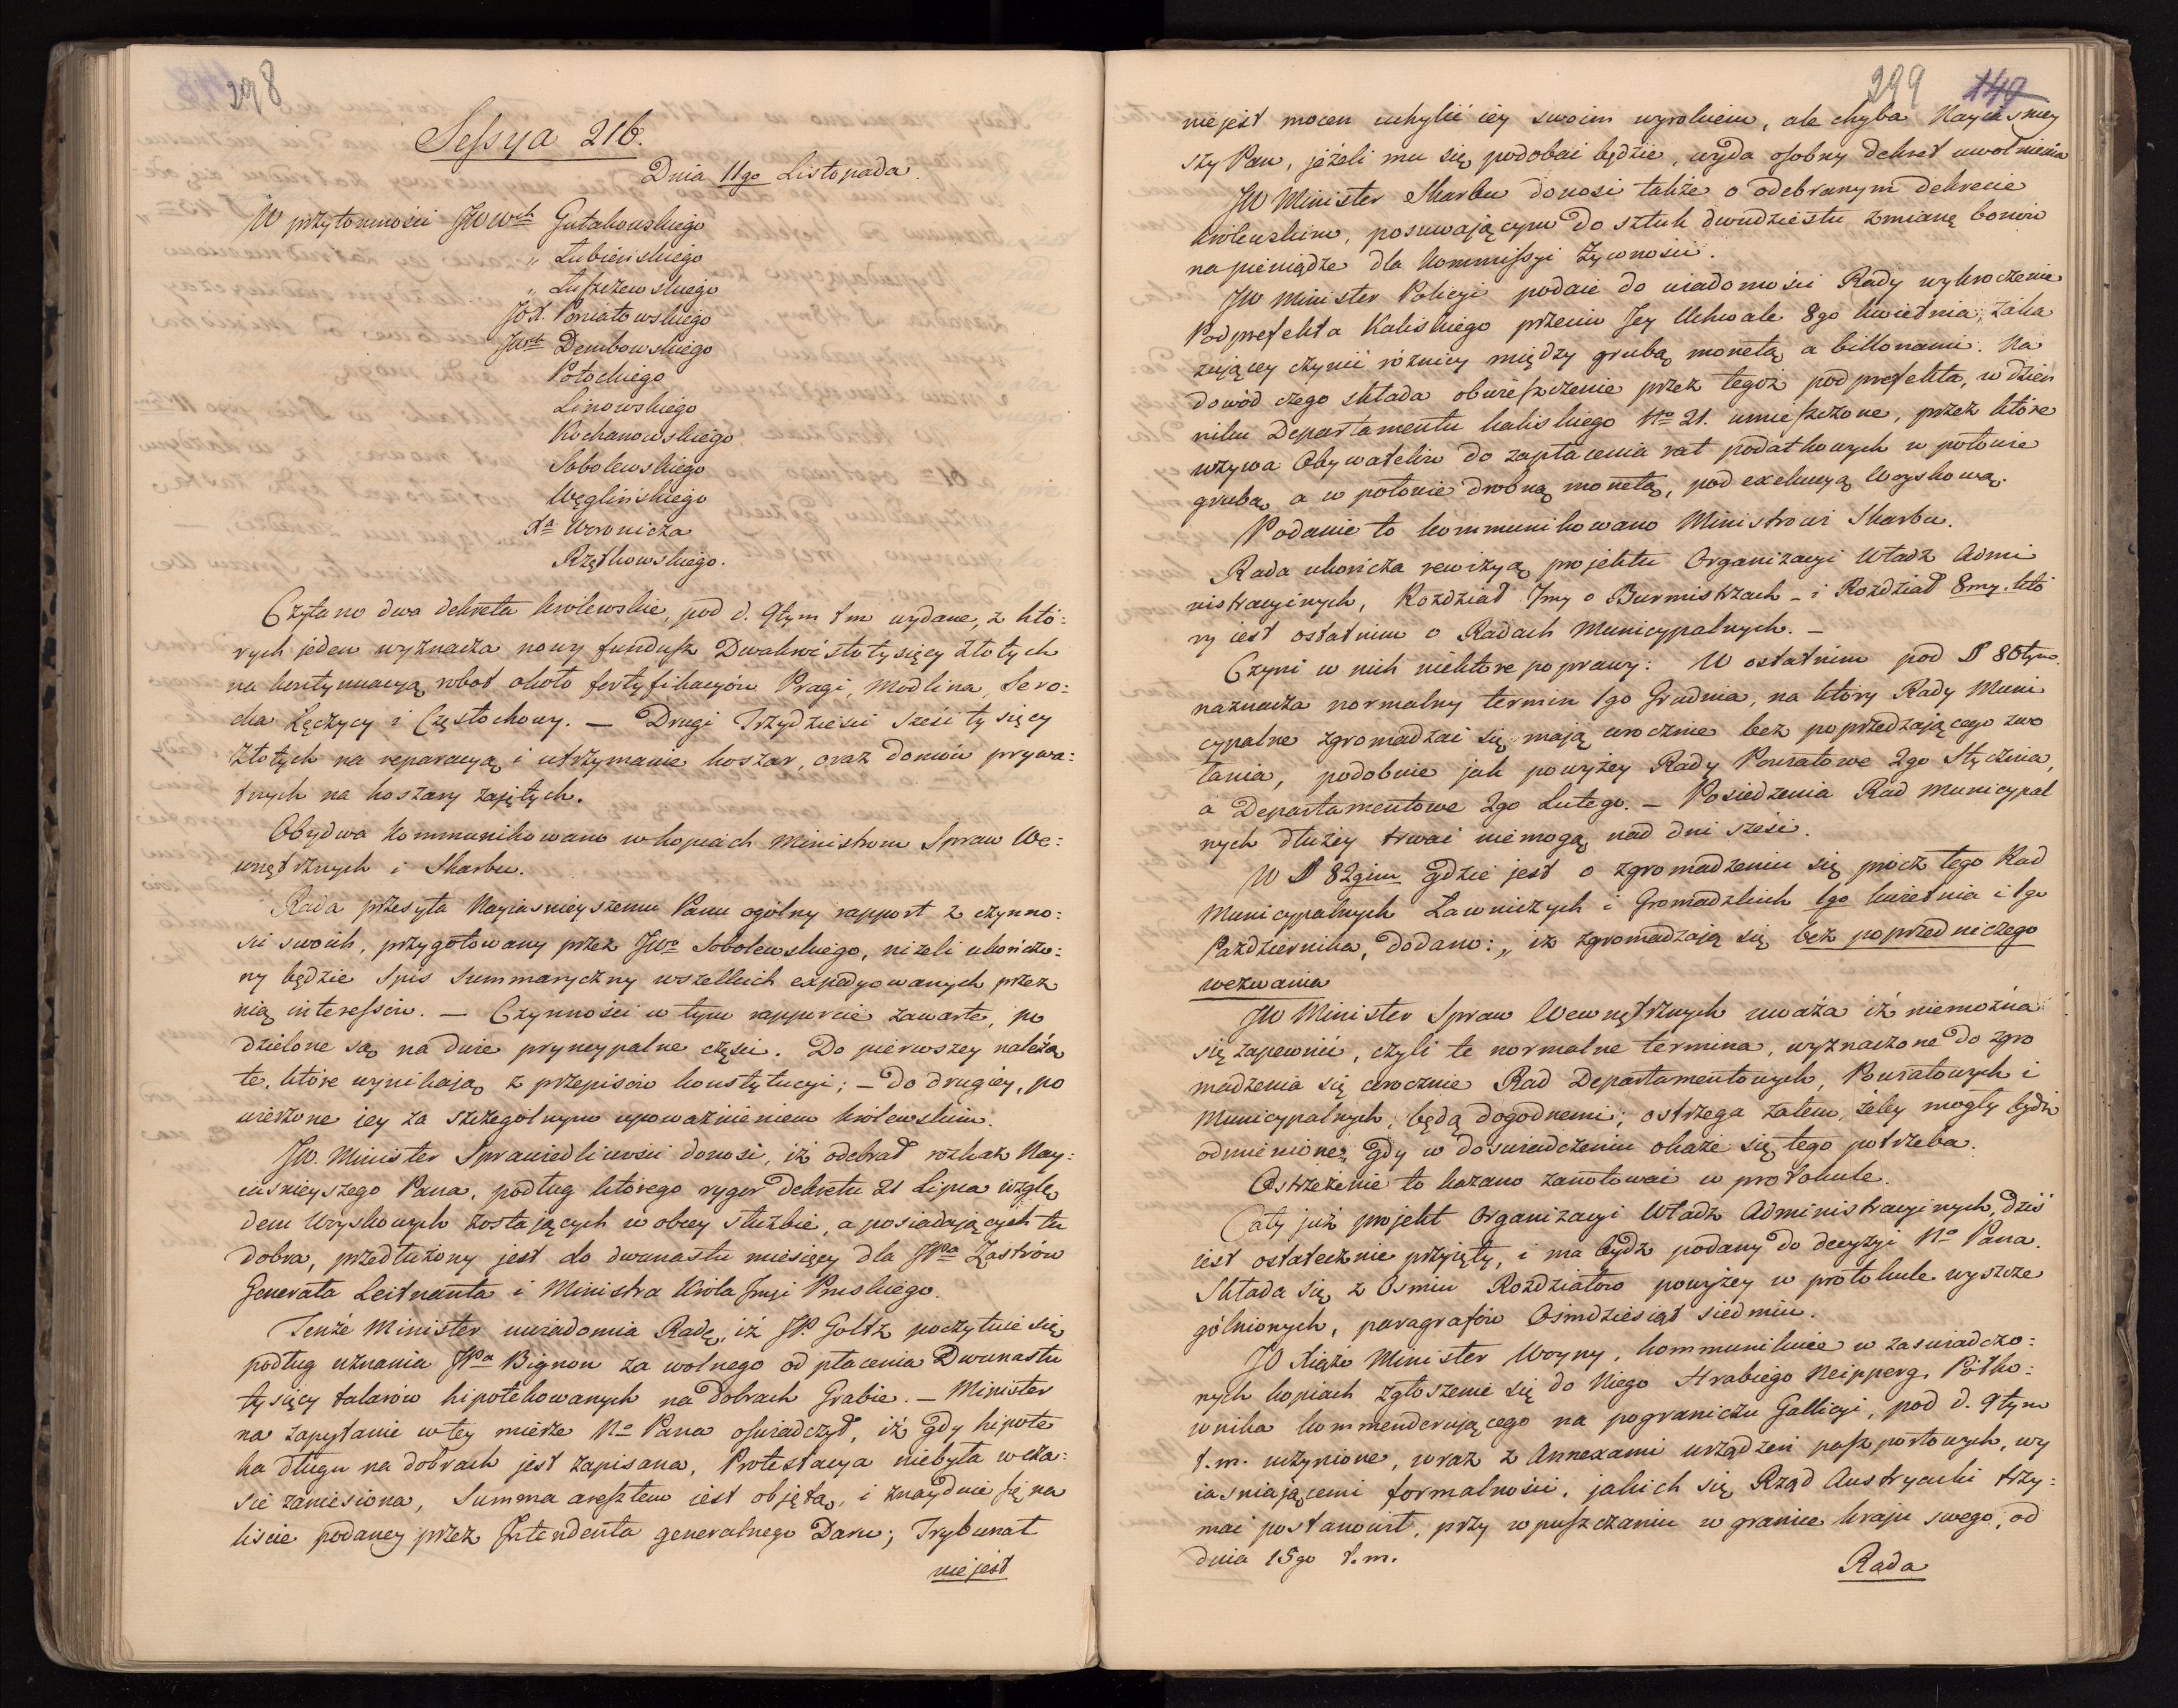 298
Sessya 216.
Dnia 11go Listopada.
W przytomności JWWch Gutakowskiego
„ Łubieńskiego
„ Łuszczewskiego
JOX. Poniatowskiego
JWch Dembowskiego
Potockiego
Linowskiego
Kochanowskiego
Sobolewskiego
Węglińskiego
Xa Woronicza
Rzętkowskiego.
Czytano dwa dekreta królewskie, pod d. 9tym t m wydane, z któ=
rych jeden wyznacza nowy fundusz Dwakroć stotysięcy złotych
na kontynuacyą robot około fortyfikacyów Pragi, Modlina, Sero=
cka Łęczycy i Częstochowy. — Drugi Trzydzieści sześć tysięcy
złotych na reparacyą i utrzymanie koszar, oraz domów prywa=
tnych na koszary zajętych.
Obydwa kommunikowano w kopiach Ministrom Spraw We=
wnętrznych i Skarbu.
Rada przesyła Nayiasnieyszemu Panu ogólny rapport z czynno=
ści swoich, przygotowany przez JWo Sobolewskiego, niżeli ukończo=
ny będzie Spis Summaryczny wszelkich expedyowanych przez
nią interessów. — Czynności w tym rapporcie zawarte, po
dzielone są na dwie pryncypalne części. Do pierwszey należą
te, które wynikają z przepisów konstytucyi; — do drugiey, po
wierzone iey za szczególnym upoważnieniem królewskim.
JW. Minister Sprawiedliwości donosi, iż odebrał rozkaz Nay=
iaśnieyszego Pana, podług którego rygor dekretu 21 Lipca wzglę
dem Woyskowych zostających w obcey służbie, a posiadających tu
dobra, przedłużony jest do dwunastu miesięcy dla JPa Zastrów
Generała Leitnanta i Ministra Króla Jmci Pruskiego.
Tenże Minister uwiadomia Radę, iż JP. Goltz poczytuie się
podług uznania JPa Bignon za wolnego od płacenia Dwunastu
tysięcy talarów hipotekowanych na dobrach Grabie. — Minister
na zapytanie w tey mierze No Pana oświadczył, iż gdy hipote
ka długu na dobrach jest zapisana, Protestacya niebyła w cza=
sie zaniesiona, Summa aresztem iest objęta, i znayduie się na
liście podaney przez Intendenta generalnego Daru; Trybunał
nie jest
299 149
niejest mocen uchylić iey swoim wyrokiem, ale chyba Nayiasniey
szy Pan, jeżeli mu się podobać będzie, wyda osobny dekret uwolnienia
JW Minister Skarbu donosi także o odebranym dekrecie
królewskim, posuwającym do sztuk dwudziestu zmianę bonów
na pieniądze dla Kommissyi Żywności.
JW Minister Policyi podaie do wiadomości Rady wykroczenie
Podprefekta Kaliskiego przeciw Jey Uchwale 8go kwietnia, zaka
zuiącey czynić różnicy między grubą monetą a billonami. Na
dowód czego składa obwieszczenie przez tegoż podprefekta, w dzien
niku Departamentu kaliskiego No 21. umieszczone, przez które
wzywa Obywatelów do zapłacenia rat podatkowych w połowie
grubą, a w połowie drobną monetą, pod exekucyą Woyskową.
Podanie to kommunikowano Ministrowi Skarbu.
Rada ukończa rewizyą projektu Organizacyi Władz Admi
nistracyinych, Rozdział 7my o Burmistrzach – i Rozdział 8my. któ
ry iest ostatnim o Radach Municypalnych. —
Czyni w nich niektóre poprawy: W ostatnim pod § 80tym
naznacza normalny termin 1go Grudnia, na który Rady Muni
cypalne zgromadzać się maią corocznie bez poprzedzającego zwo
łania, podobnie jak powyżey Rady Powiatowe 2go Stycznia,
a Departamentowe 2go Lutego. — Posiedzenia Rad Municypal
nych dłużey trwać niemogą nad dni sześć.
W § 82gim gdzie jest o zgromadzeniu się prócz tego Rad
Municypalnych Ławniczych i Gromadzkich 1go kwietnia i 1go
Października, dodano: „ iż zgromadzają się bez poprzedniczego
wezwania
JW Minister Spraw Wewnętrznych uważa iż niemożna
się zapewnić, czyli te normalne termina, wyznaczone do zgro
madzenia się corocznie Rad Departamentowych, Powiatowych i
Municypalnych, będą dogodnemi; ostrzega zatem, żeby mogły bydź
odmienione, gdy w doświadczeniu okaże się tego potrzeba.
Ostrzeżenie to kazano zanotować w protokule.
Cały już projekt Organizacyi Władz Administracyinych, dziś
iest ostatecznie przyięty, i ma bydź podany do decyzyi No Pana.
Składa się z Ośmiu Rozdziałów powyżey w protokule wyszcze
gólnionych, paragrafów Ośmdziesiąt siedmiu.
JO Xiąże Minister Woyny, kommunikuie w zaświadczo=
nych kopiach zgłoszenie się do Niego Hrabiego Neipperg, Półko=
wnika kommenderującego na pograniczu Gallicyi, pod d. 9tym
t.m. uczynione, wraz z Annexami urządzeń paszportowych, wy
iaśniającemi formalności, jakich się Rząd Austryacki trzy=
mać postanowił, przy wpuszczaniu w granice kraju swego, od
dnia 15go t.m.
Rada